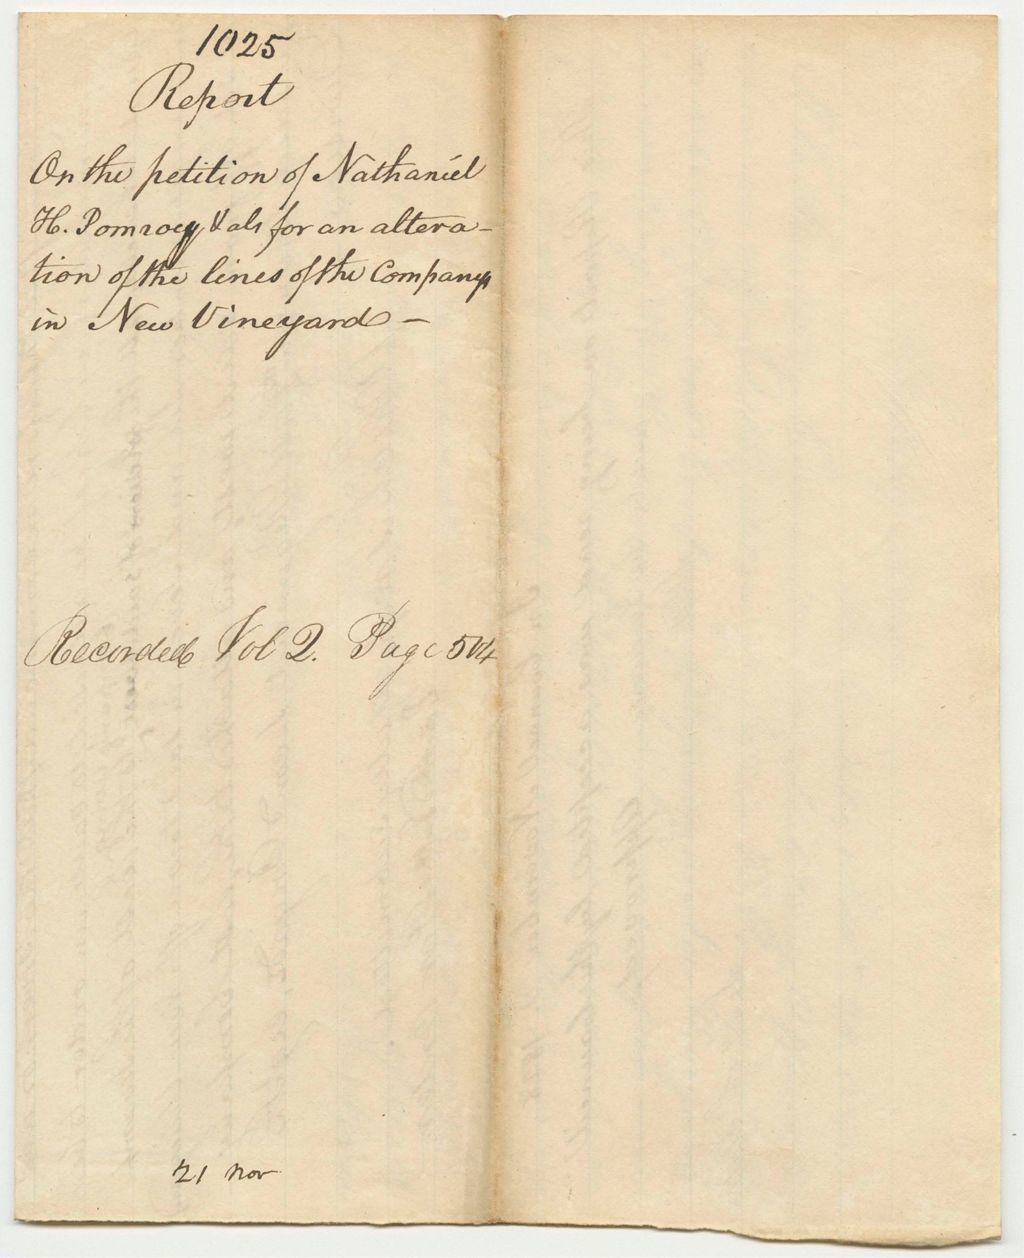 1025
Report
On the petition of Nathaniel
H. Pomroy & als for an altera-
tion of the lines of the Company
in New Vineyard —
Recorded Vol 2. Page 504
21 Nov